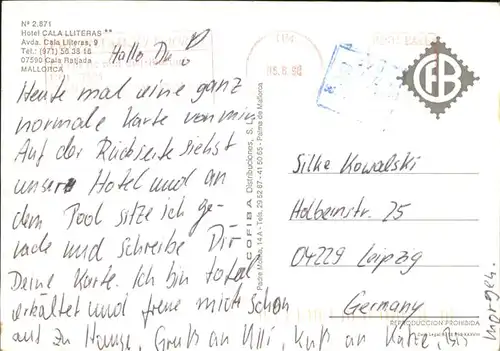 Nº 2.871
Hotel CALA LLITERAS **
Avda. Cala Lliteras, 9
Tel.: (971) 56 38 16
07590 Cala Ratjada
MALLORCA
Hallo Du!
Heute mal eine ganz
normale Karte von mir.
Auf der Rückseite siehst
unser Hotel und an
dem Pool sitze ich ge-
rade und schreibe Dir
Deine Karte. Ich bin total
erkältet und freue mich schon
auf zu Hause. Gruß an Ulli, Kuß an Katze, Bis
morgen.
COFIBA Distribuciones, S. L.
Padre Molina, 14 A - Tels. 29 52 67 - 41 50 65 - Palma de Mallorca
CFB
Silke Kowalski
Holbeinstr. 25
04229 Leipzig
Germany
REPRODUCCION PROHIBIDA